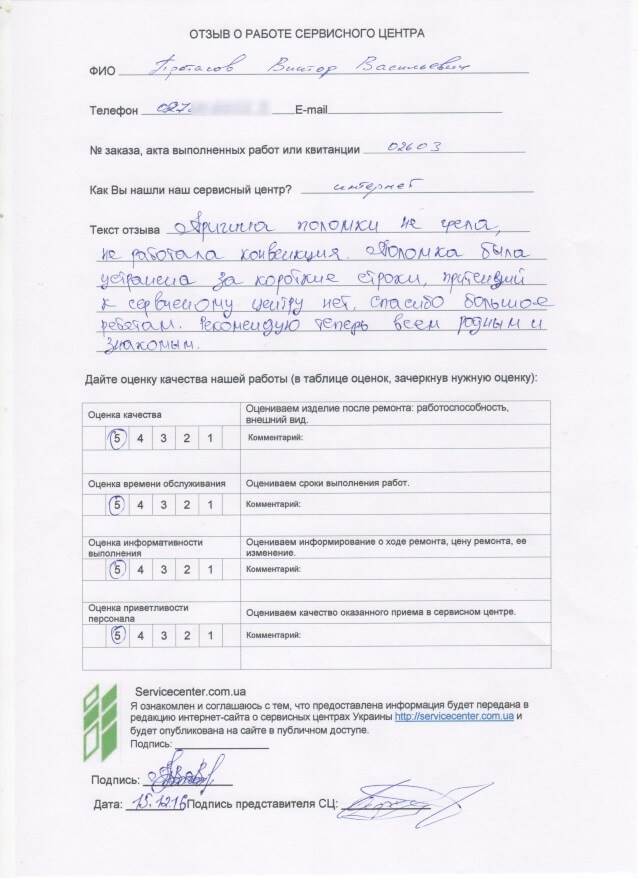 ОТЗЫВ О РАБОТЕ СЕРВИСНОГО ЦЕНТРА
ФИО Протасов Виктор Васильевич
Телефон 027 E-mail
№ заказа, акта выполненных работ или квитанции 02603
Как Вы нашли наш сервисный центр? интернет
Текст отзыва Причина поломки не грела,
не работала конвекция. Поломка была
устранена за короткие строки, притензий
к сервисному центру нет. Спасибо большое
ребятам. Рекомендую теперь всем родным и
знакомым.
Дайте оценку качества нашей работы (в таблице оценок, зачеркнув нужную оценку):
Оценка качества Оцениваем изделие после ремонта: работоспособность,
внешний вид.
5 4 3 2 1 Комментарий:
Оценка времени обслуживания Оцениваем сроки выполнения работ.
5 4 3 2 1 Комментарий:
Оценка информативности Оцениваем информирование о ходе ремонта, цену ремонта, ее
выполнения изменение.
5 4 3 2 1 Комментарий:
Оценка приветливости Оцениваем качество оказанного приема в сервисном центре.
персонала
5 4 3 2 1 Комментарий:
Servicecenter.com.ua
Я ознакомлен и соглашаюсь с тем, что предоставлена информация будет передана в
редакцию интернет-сайта о сервисных центрах Украины http://servicecenter.com.ua и
будет опубликована на сайте в публичном доступе.
Подпись:
Подпись:
Дата: 15.12.16 Подпись представителя СЦ: